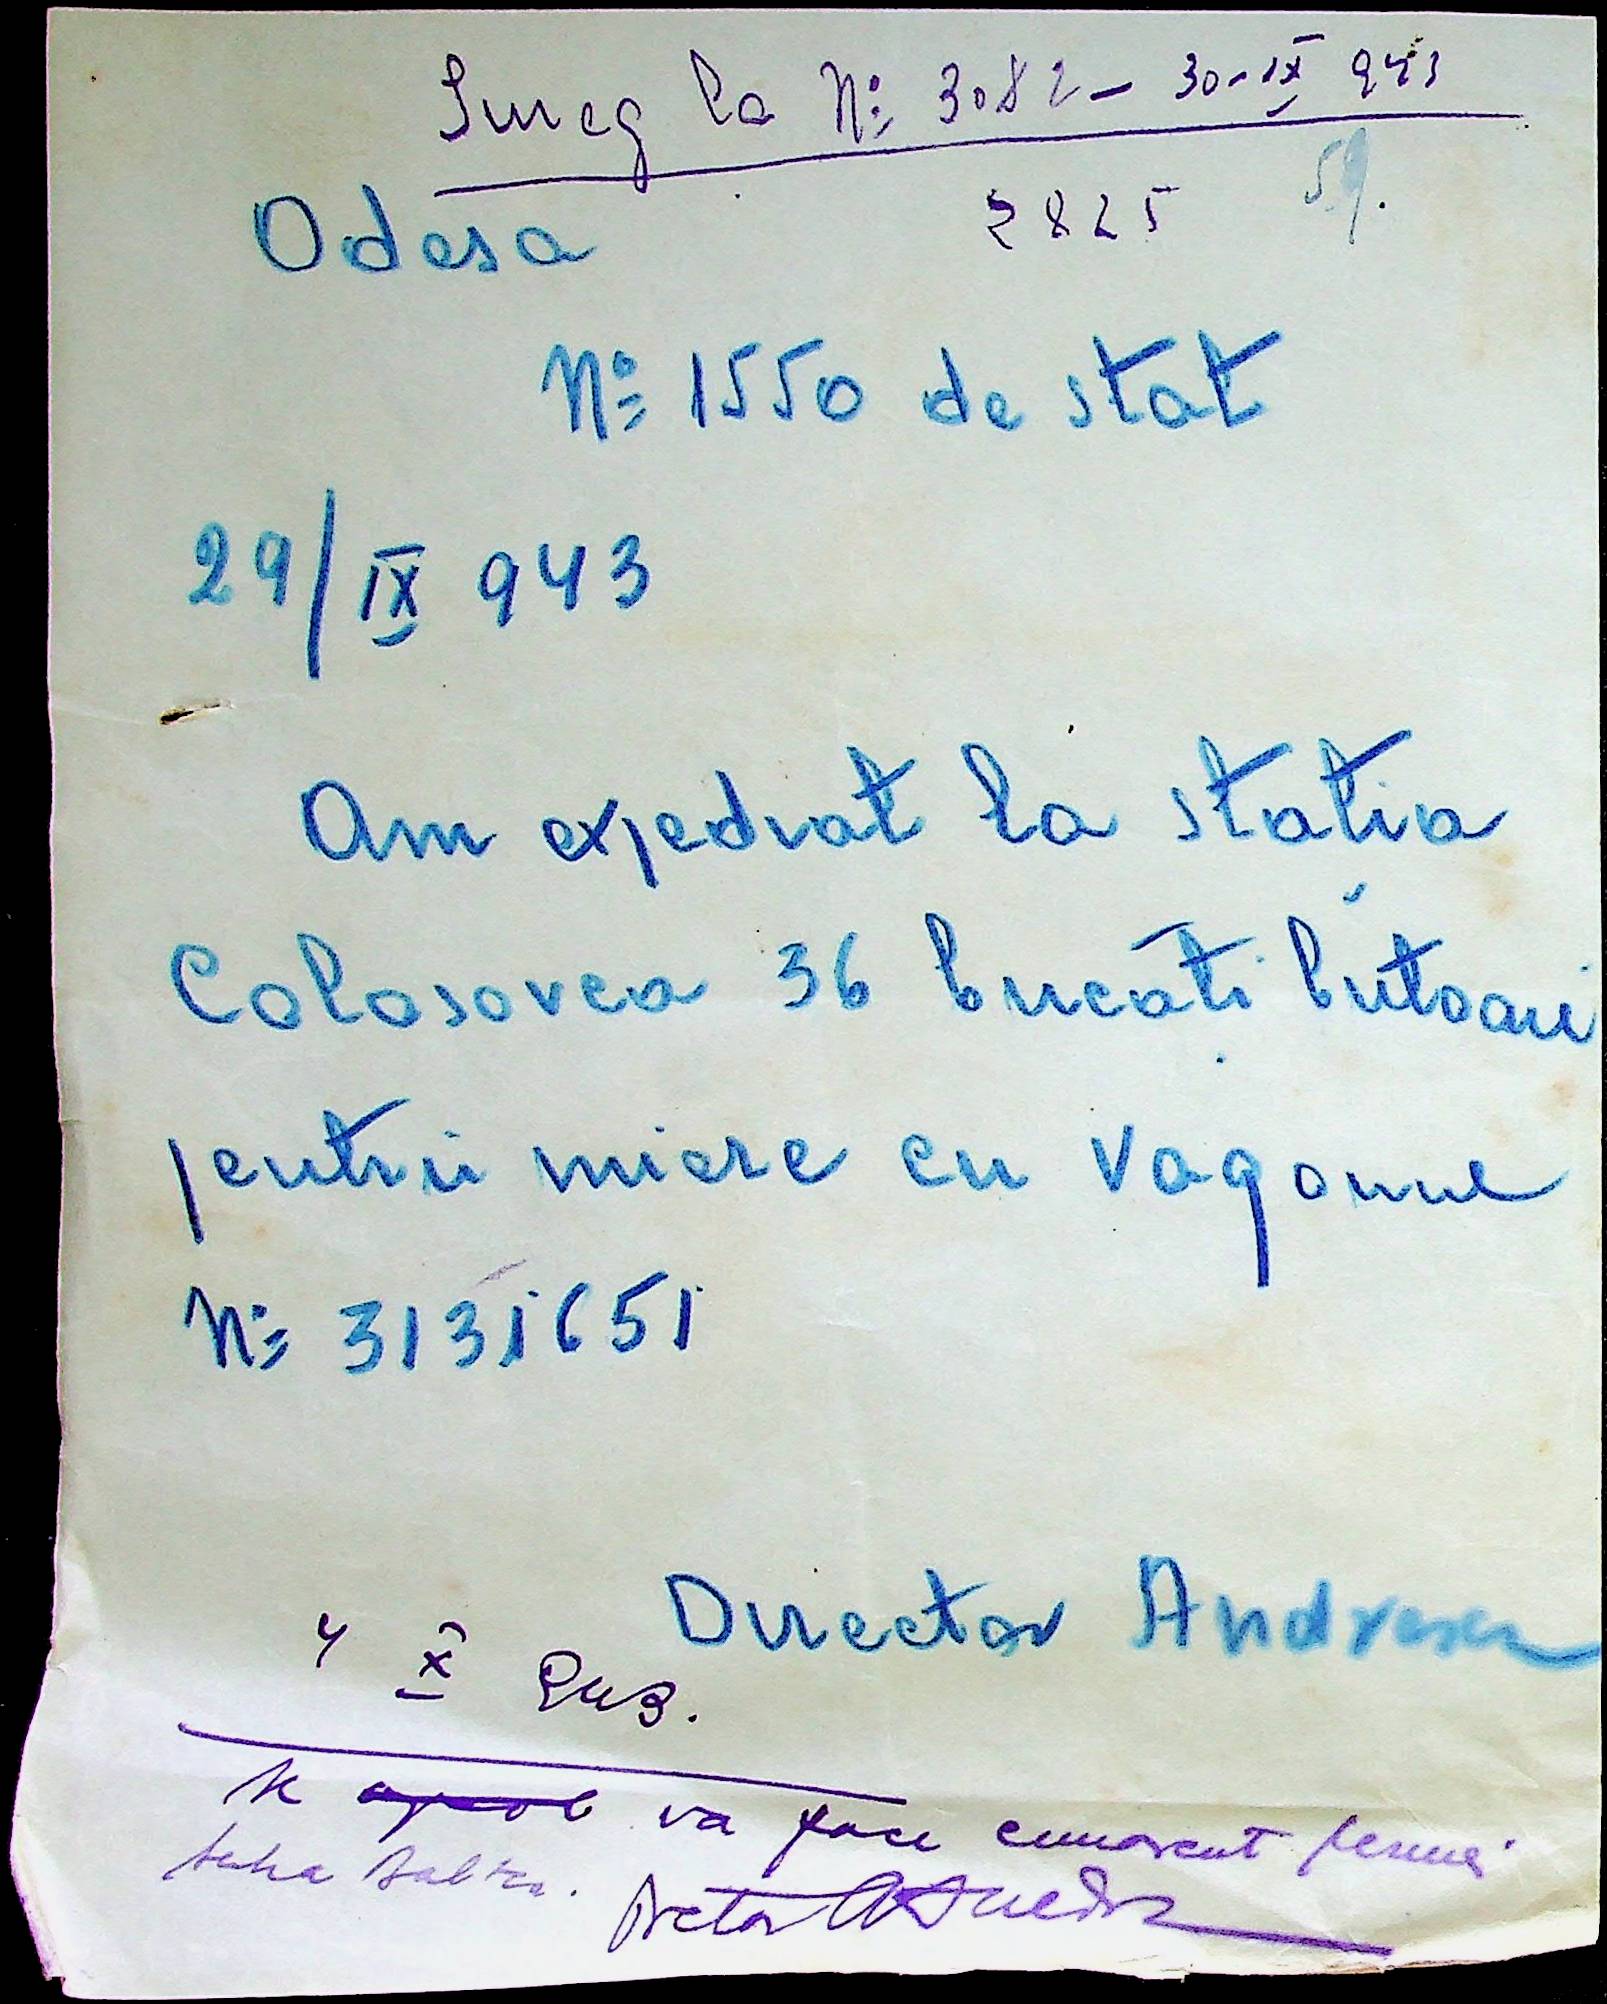 Inreg la Nº 3082 – 30-IX 943
2825 59.
Odesa
Nº 1550 de stat
29/IX 943
Am expediat la statia
Colosovca 36 bucăti butoaie
pentru miere cu vagonul
Nº 3131651
Director Andreescu
4 X 943.
Se aprob va face cunoscut fermei
Pretor